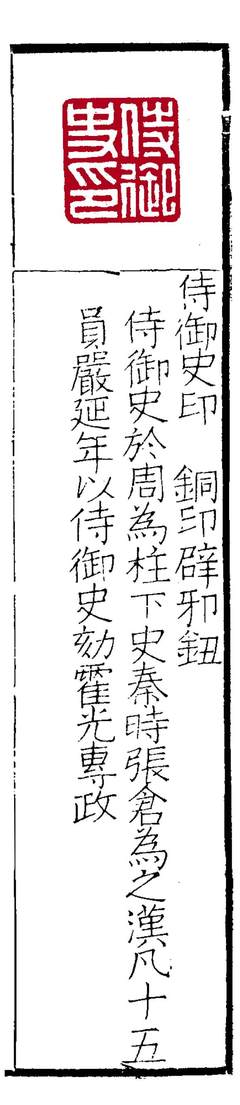 侍御史印
侍御史印　銅印辟邪鈕
侍御史於周為柱下史秦時張倉為之漢凡十五
員嚴延年以侍御史劾霍光專政